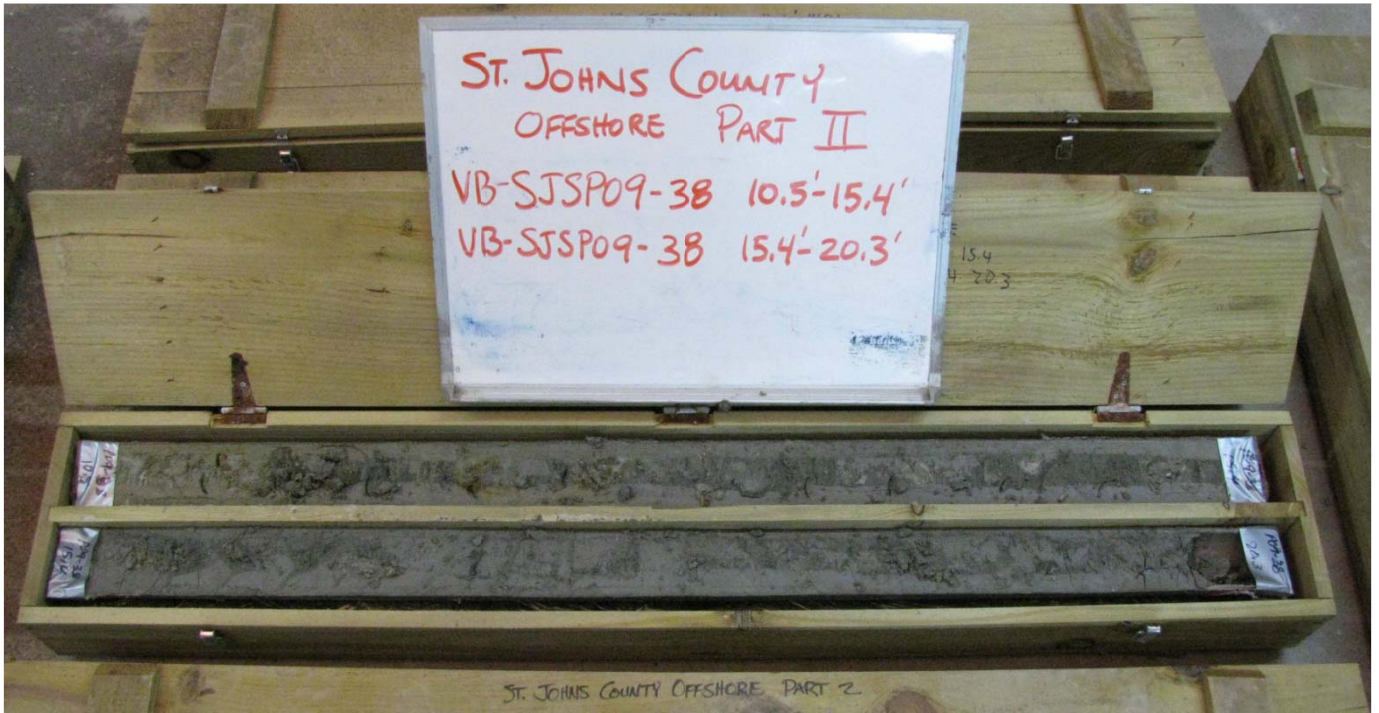 ST. JOHNS COUNTY
OFFSHORE PART II
VB-SJSP09-38 10.5'-15.4'
VB-SJSP09-38 15.4'-20.3'
15.4
20.3
P09-38
15.4
P09-38
20.3
ST. JOHNS COUNTY OFFSHORE PART 2